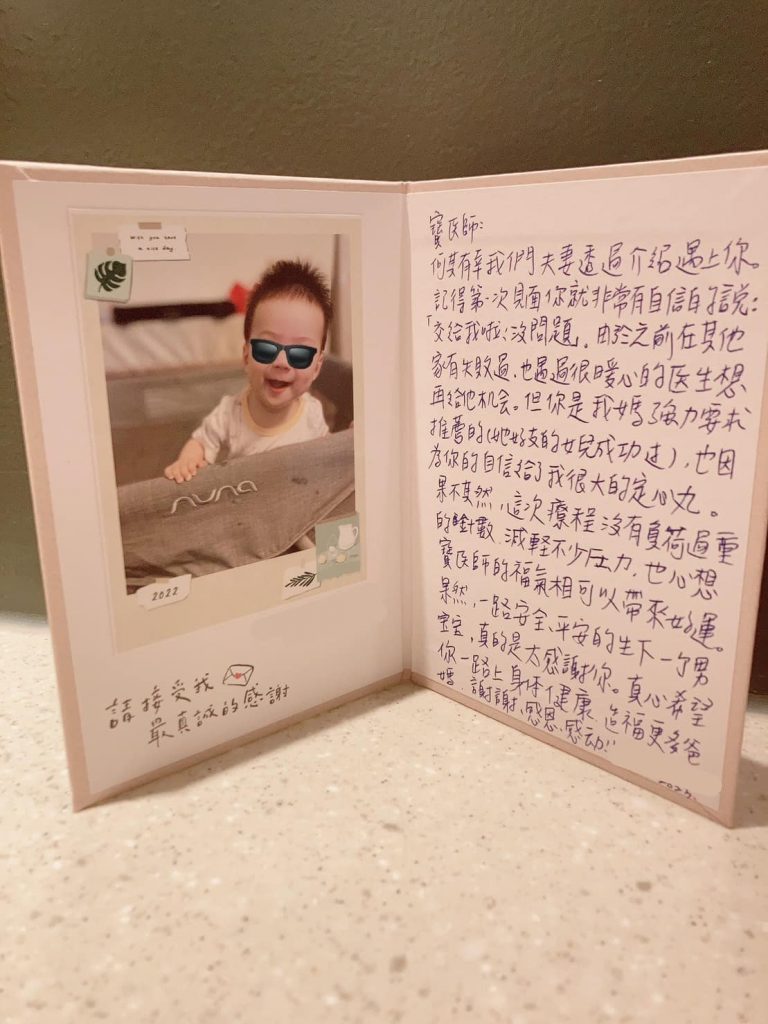 Wish you have
a nice day
nuna
2022
請接受我
最真誠的感謝
寶医師:
何其有幸我們夫妻透過介紹遇上你。
記得第一次見面你就非常有自信的說:
「交給我啦!沒問題」。由於之前在其他
家有失敗過,也遇過很暖心的医生想
再給他机会。但你是我媽強力要求
推薦的(她好友的女兒成功过),也因
為你的自信給了我很大的定心丸。
果不其然,這次療程沒有負荷過重
的針數,減輕不少压力,也心想
寶医師的福氣相可以帶來好運。
果然,一路安全、平安的生下一个男
宝宝,真的是太感謝你。真心希望
你一路上身体健康,造福更多爸
媽,謝謝、感恩、感动!!